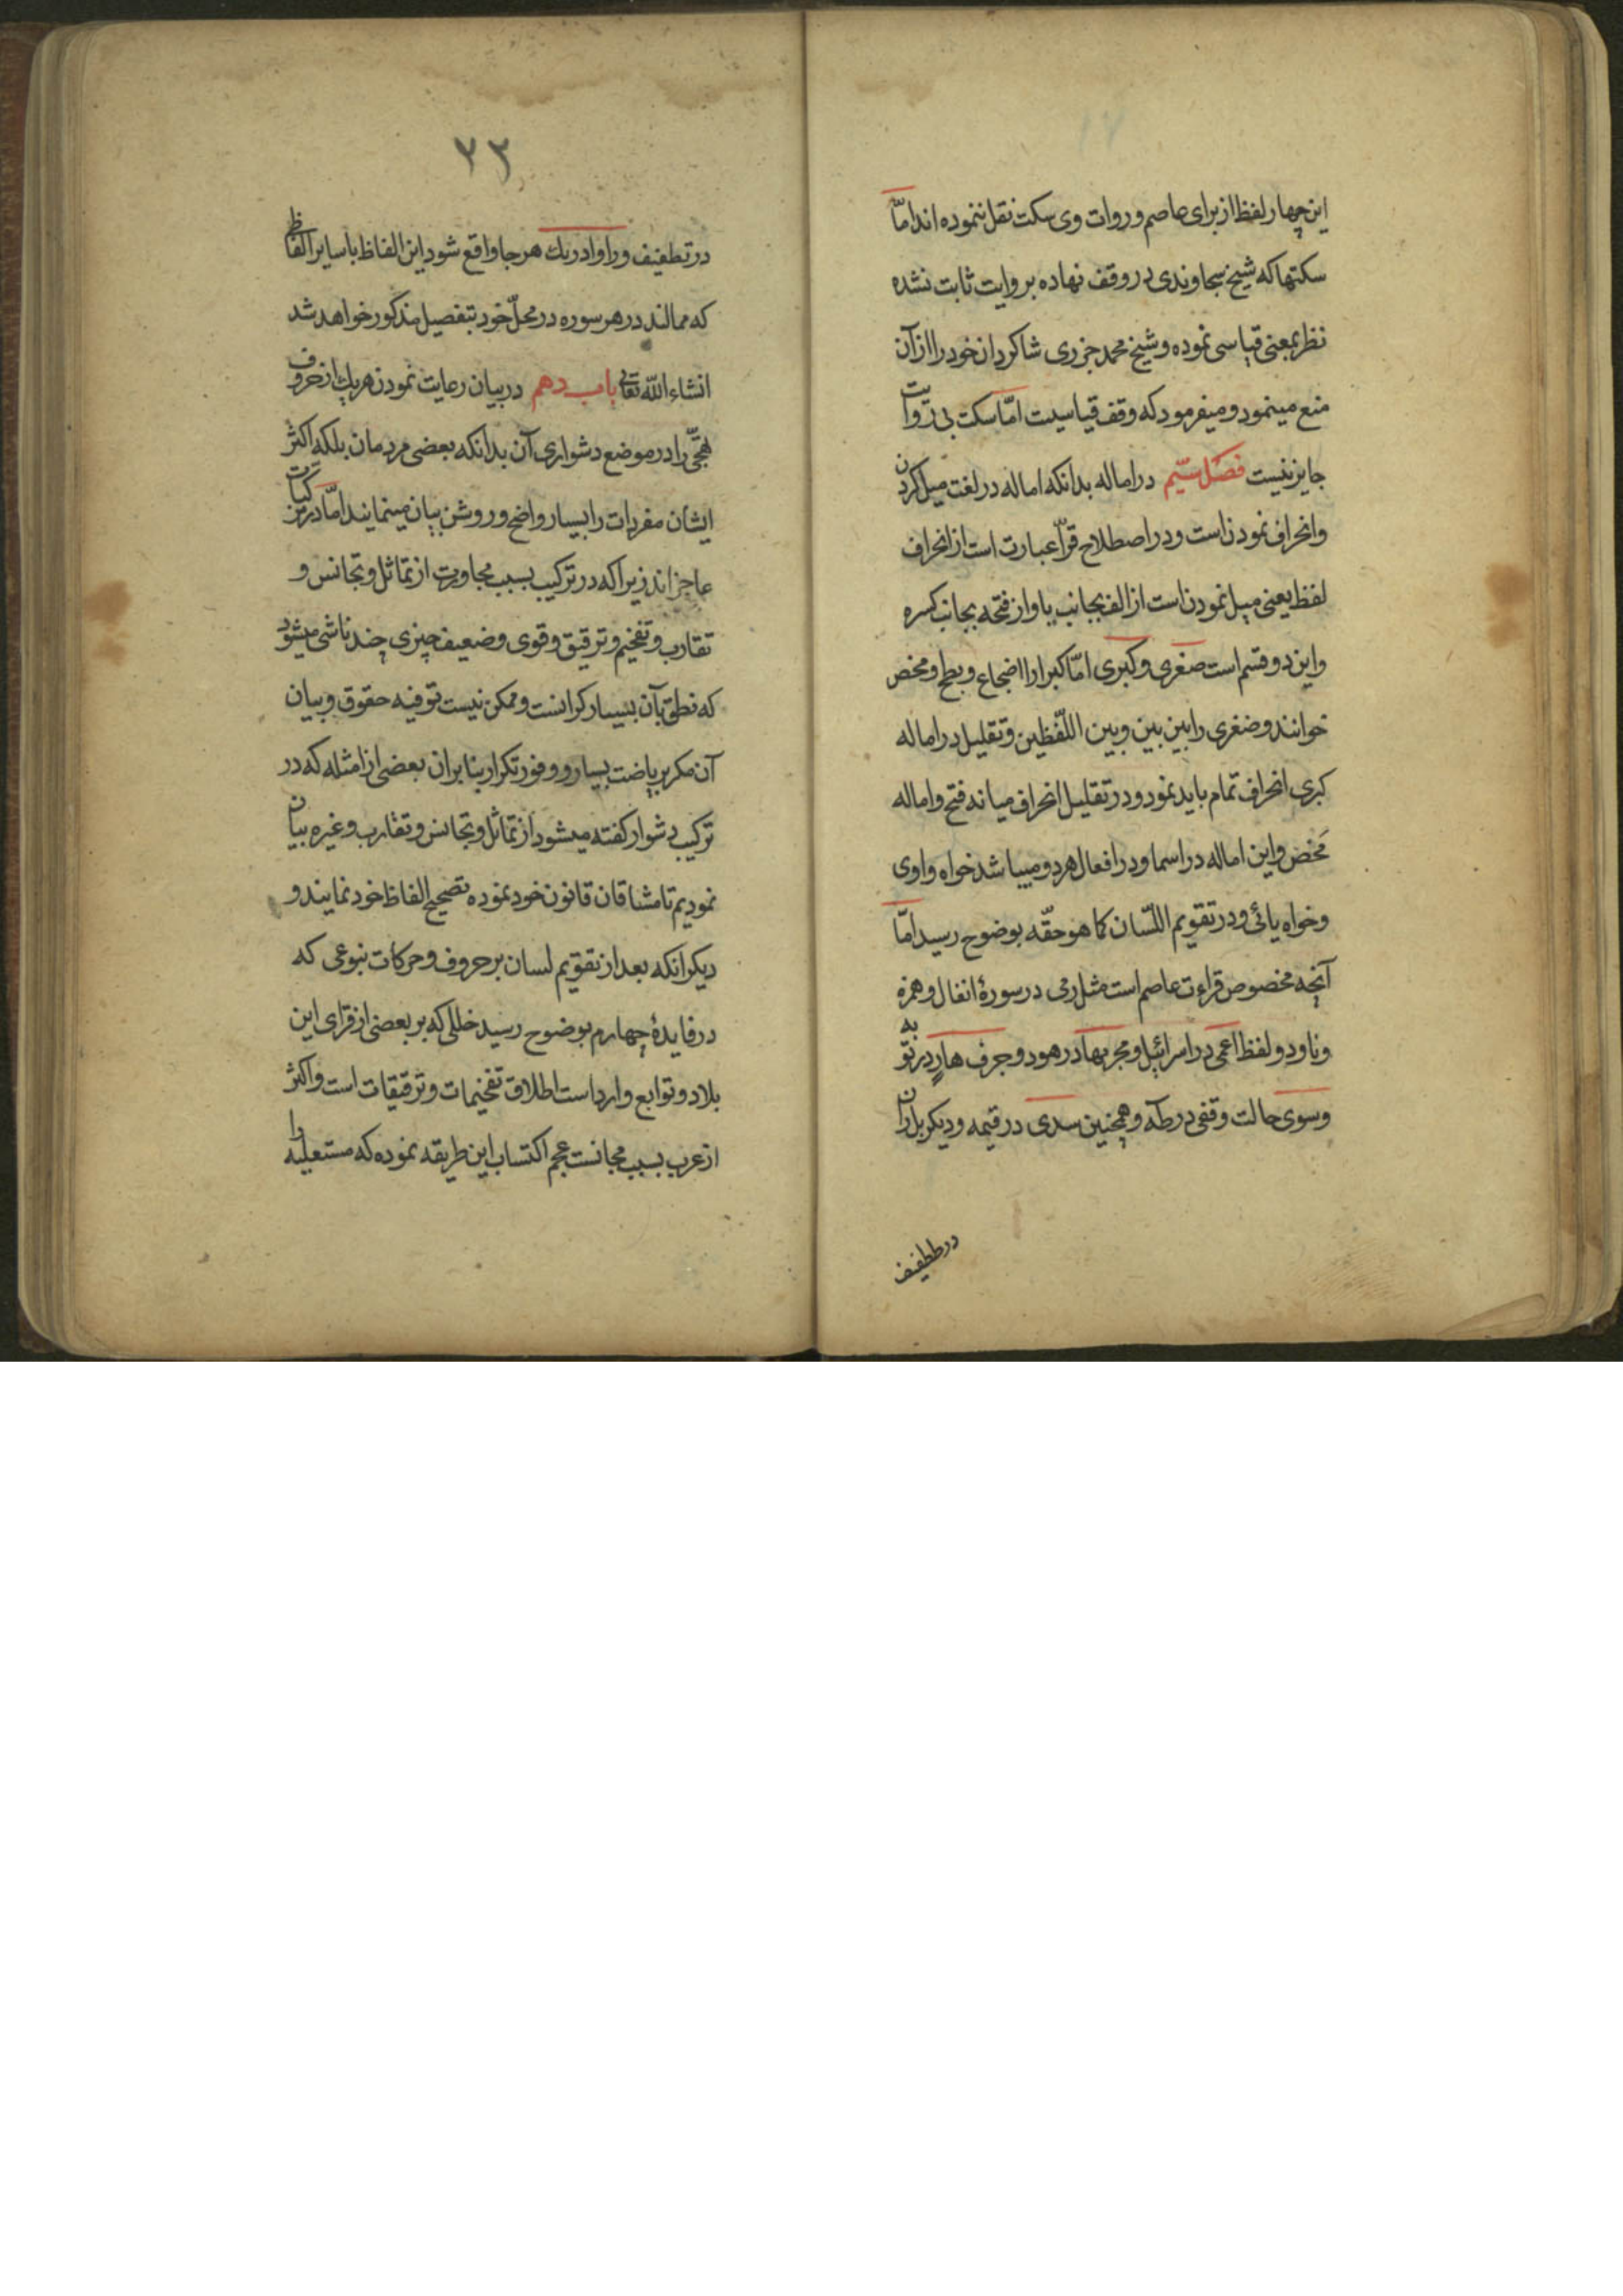 این چهار لفظ از برای عاصم و روات وی سکت نقل ننموده اند امّا
سکتها که شیخ سجاوندی در وقف نهاده بروایت ثابت نشده
نظر بمعنی قیاسی نموده و شیخ محمد جزری شاکردان خود را از آن
منع مینمود و میفرمود که وقف قیاسیت امّا سکت بی روایت
جایز نیست فصل سیّم در اماله بدانکه اماله در لغت میل کردن
وانحراف نمودنست ودر اصطلاح قرّا عبارت است از انحراف
لفظ یعنی میل نمودنست از الف بجانب یا و از فتحه بجانب کسره
واین دو قسم است صغری وکبری امّا کبرا را اضجاع وبطح ومحض
خوانند وصغری را بین بین وبین اللّفظین وتقلیل در اماله
کبری انحراف تمام باید نمود ودر تقلیل انحراف میانه فتح واماله
مَحض واین اماله در اسما ودر افعال هر دو میباشد خواه واوی
وخواه یائی ودر تقویم اللّسان کما هو حقّه بوضوح رسید امّا
آنچه مخصوص قراءت عاصم است مثل رمی در سورهٔ انفال وهمزه
وناء ودو لفظ اعمی در اسرائیل ومجریها در هود وجرف هارٍ در توبه
وسوی حالت وقفی در طه وهمچنین سدی در قیمه ودیکر بل ران
در طفیف
۲۲
در تطفیف ورا وادریك هر جا واقع شود این الفاظ با سایر الفاظ
که ممالند در هر سوره در محلّ خود بتفصیل مذکور خواهد شد
انشاء الله تعالی باب دهم در بیان رعایت نمودن هریك از حروف
تهجّی را در موضع دشواری آن بدانکه بعضی مردمان بلکه اکثر
ایشان مفردات را بسیار واضح وروشن بیان مینمایند امّا در مرکبات
عاجزاند زیرا که در ترکیب بسبب مجاورت از تماثل وتجانس و
تقارب وتفخیم وترقیق وقوی وضعیف چیزی چند ناشی میشود
که نطق بآن بسیار کرانست وممکن نیست توفیه حقوق وبیان
آن مکر بریاضت بسیار ووفور تکرار بنابران بعضی از امثله که در
ترکیب دشوار کفته میشود از تماثل وتجانس وتقارب وغیره بیان
نمودیم تا مشاقان قانون خود نموده تصحیح الفاظ خود نمایند و
دیکر انکه بعد از تقویم لسان بر حروف وحرکات بنوعی که
در فایدهٔ چهارم بوضوح رسید خللی که بر بعضی از قرای این
بلاد وتوابع وارد است اطلاق تفخیمات وترقیقات است واکثر
از عرب بسبب مجانست عجم اکتساب این طریقه نموده که مستعلیه را